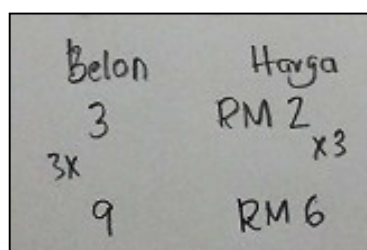 Belon Harga
3 RM 2
3x x3
9 RM 6